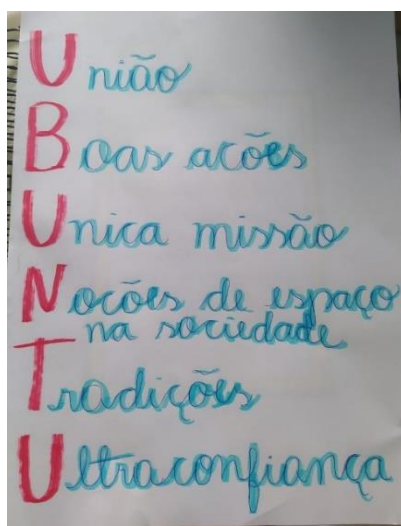 União
Boas acões
Unica missão
Nocões de espaço
na sociedade
Tradições
Ultraconfiança